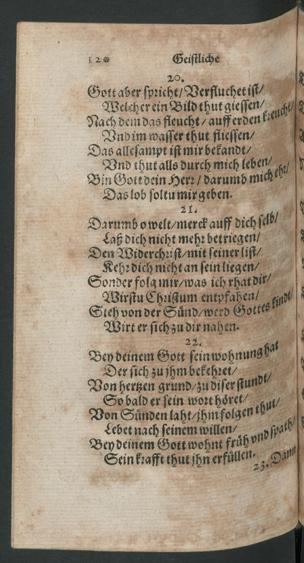 120 Geistliche
20.
Gott aber spricht/ Verfluchet ist/
Welcher ein Bild thut giessen/
Nach dem das fleucht/ auff erden kreucht/
Vnd im wasser thut fliessen/
Das allesampt ist mir bekandt/
Vnd thut alls durch mich leben/
Bin Gott dein Herr/ darumb mich ehr/
Das lob soltu mir geben.
21.
Darumb o welt/ merck auff dich selb/
Laß dich nicht mehr betriegen/
Den Widerchrist/ mit seiner list/
Kehr dich nicht an sein liegen/
Sonder folg mir/ was ich rhat dir/
Wirstu Christum entpfahen/
Steh von der Sünd/ werd Gottes kindt/
Wirt er sich zu dir nahen.
22.
Bey deinem Gott sein wohnung hat
Der sich zu jhm bekehret/
Von hertzen grund/ zu diser stundt/
So bald er sein wort höret/
Von Sünden laht/ jhm folgen thut/
Lebet nach seinem willen/
Bey deinem Gott wohnt früh vnd spath/
Sein krafft thut jhn erfüllen.
23. Dann